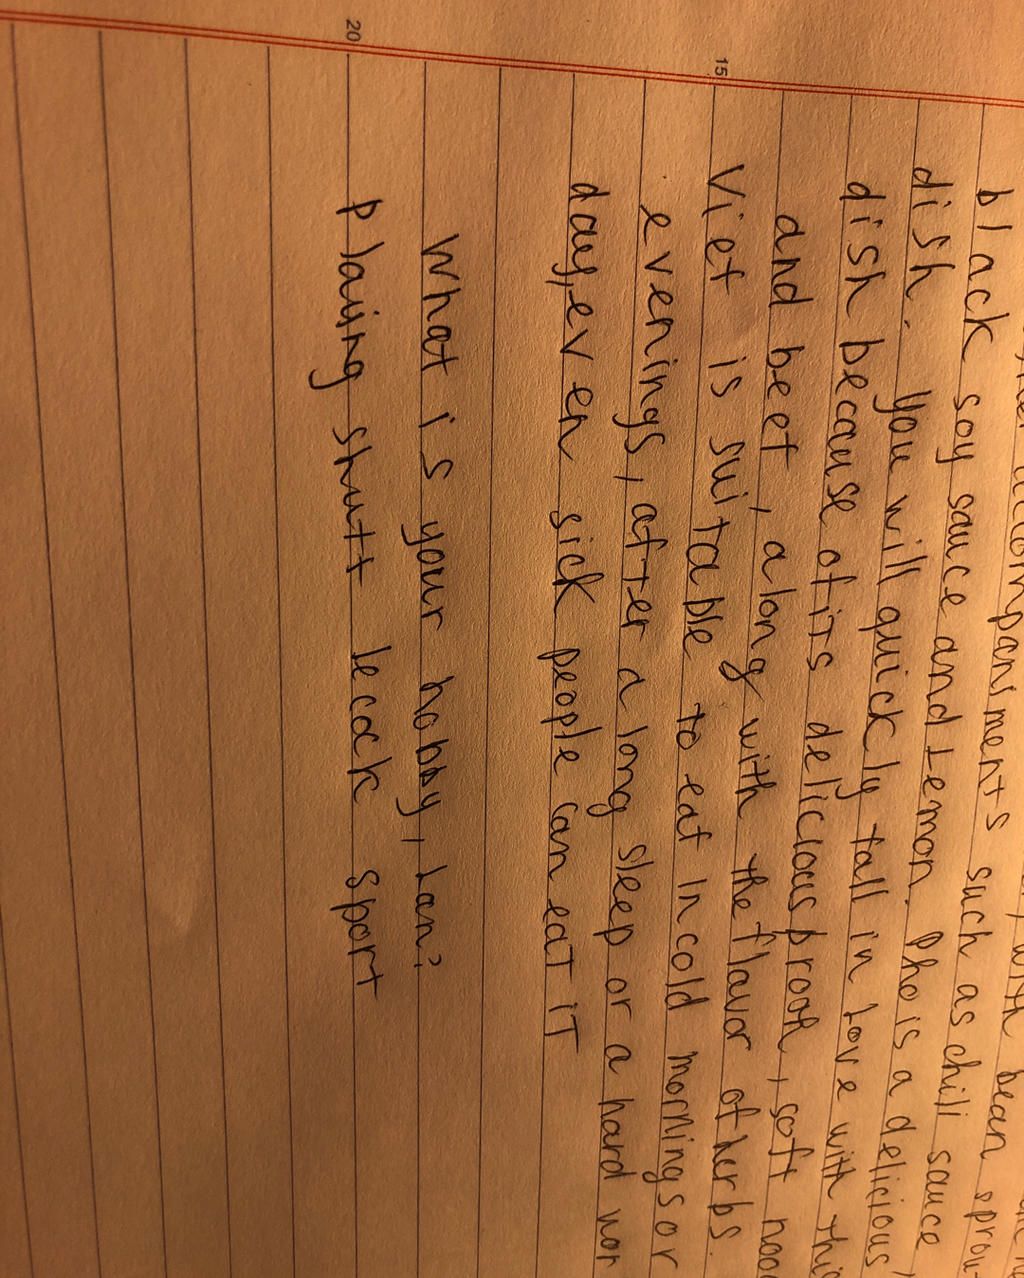 accompaniments such as chili sauce,
black soy sauce and Lemon. Pho is a delicious
dish. You will quickly fall in Love with this
dish because of its delicious proth, soft
and beef, along with the flavor of herbs.
Viet is suitable to eat in cold mornings or
evenings, after a long sleep or a hard wor
day, even sick people can eat it
What is your hobby, Lan?
Playing shutt lecock sport
15
20